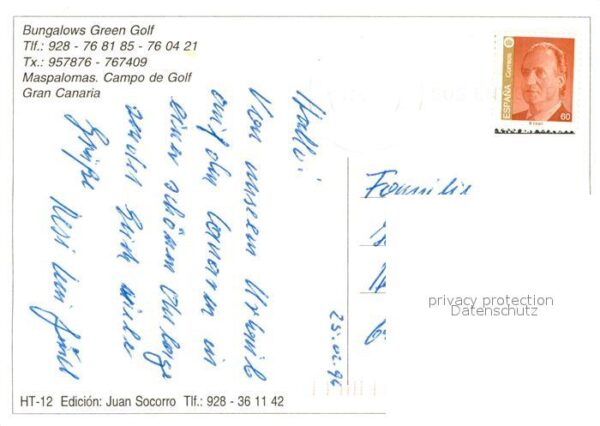 Bungalows Green Golf
Tlf.: 928 - 76 81 85 - 76 04 21
Tx.: 957876 - 767409
Maspalomas. Campo de Golf
Gran Canaria
ESPAÑA
Correos
60
Hallo!
Von unserem Urlaub
auf den Canaren in
einer schönen Anlage
sendet Euch viele
Grüße
Familie
25.02.96
privacy protection
Datenschutz
HT-12 Edición: Juan Socorro Tlf.: 928 - 36 11 42